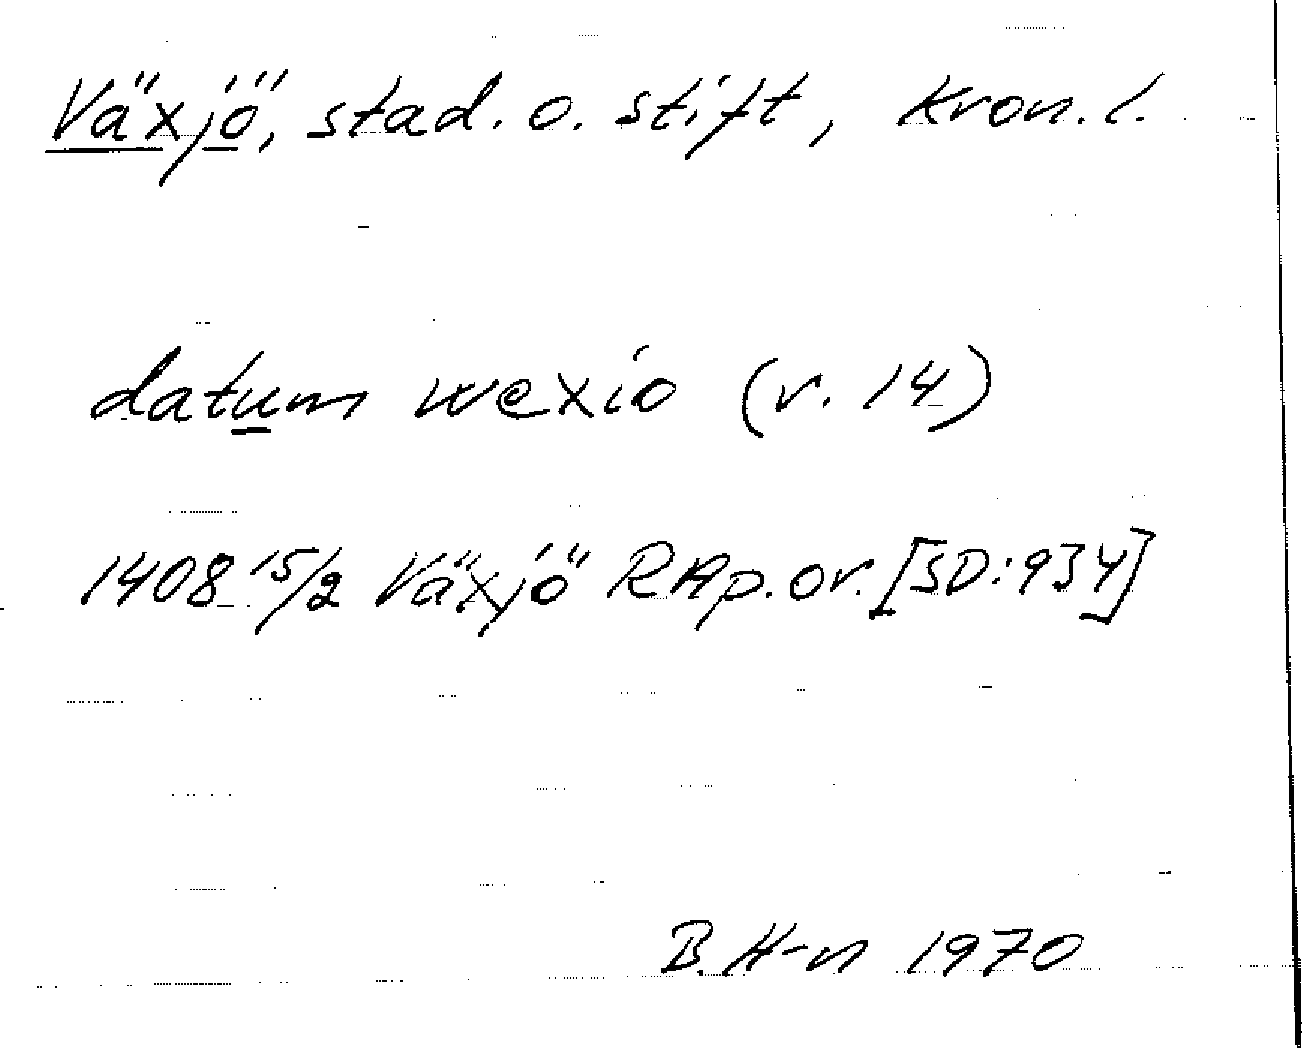 Växjö, stad. o. stift, Kron. l.
datum wexio (r. 14)
1408 15/2 Växjö RAp. or. [SD:934]
B. H-n 1970